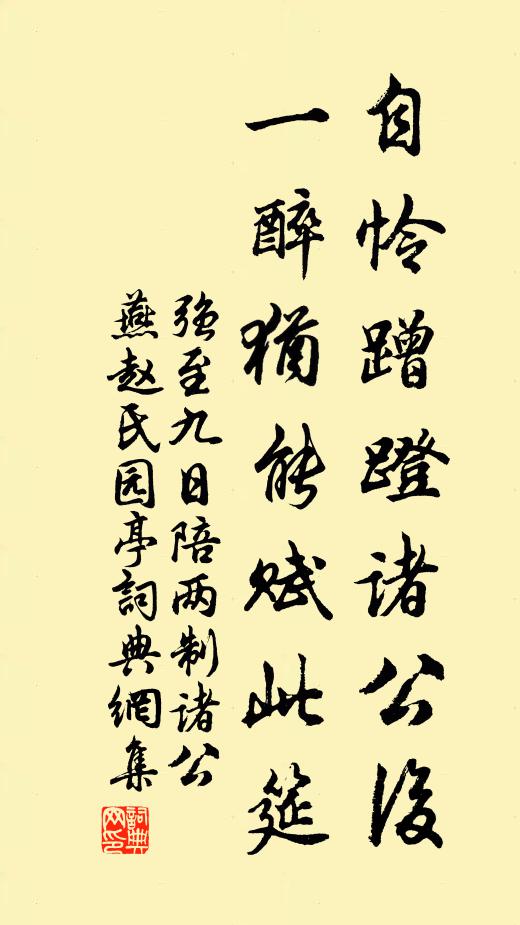 自怜蹭蹬诸公後
一醉猶能赋此筵
强至九日陪两制诸公
燕赵氏园亭詞典網集
詞典网印